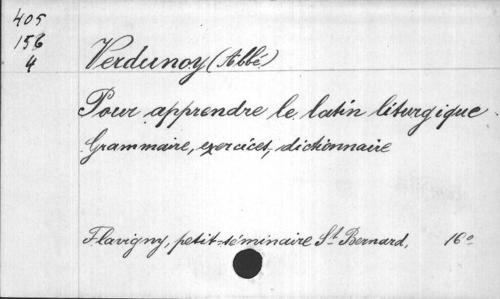 405
156
4
Verdunoy (Abbé)
Pour apprendre le latin liturgique.
Grammaire, exercices, dictionnaire
Flavigny, petit-séminaire St Bernard, 16o